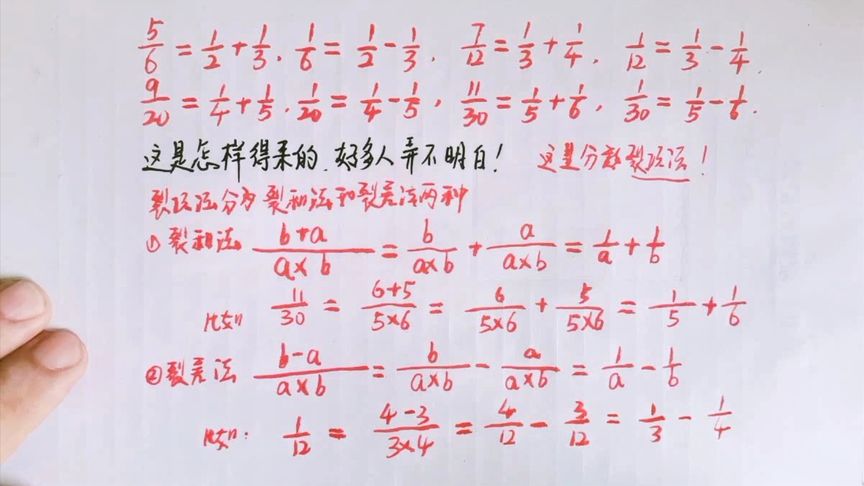 5/6 = 1/2 + 1/3, 1/6 = 1/2 - 1/3, 7/12 = 1/3 + 1/4, 1/12 = 1/3 - 1/4.
9/20 = 1/4 + 1/5, 1/20 = 1/4 - 1/5, 11/30 = 1/5 + 1/6, 1/30 = 1/5 - 1/6.
这是怎样得来的,好多人弄不明白! 这里分数裂项法!
裂项法分为裂和法和裂差法两种
① 裂和法 (b+a)/(a×b) = b/(a×b) + a/(a×b) = 1/a + 1/b
比如 11/30 = (6+5)/(5×6) = 6/(5×6) + 5/(5×6) = 1/5 + 1/6
② 裂差法 (b-a)/(a×b) = b/(a×b) - a/(a×b) = 1/a - 1/b
比如: 1/12 = (4-3)/(3×4) = 4/12 - 3/12 = 1/3 - 1/4